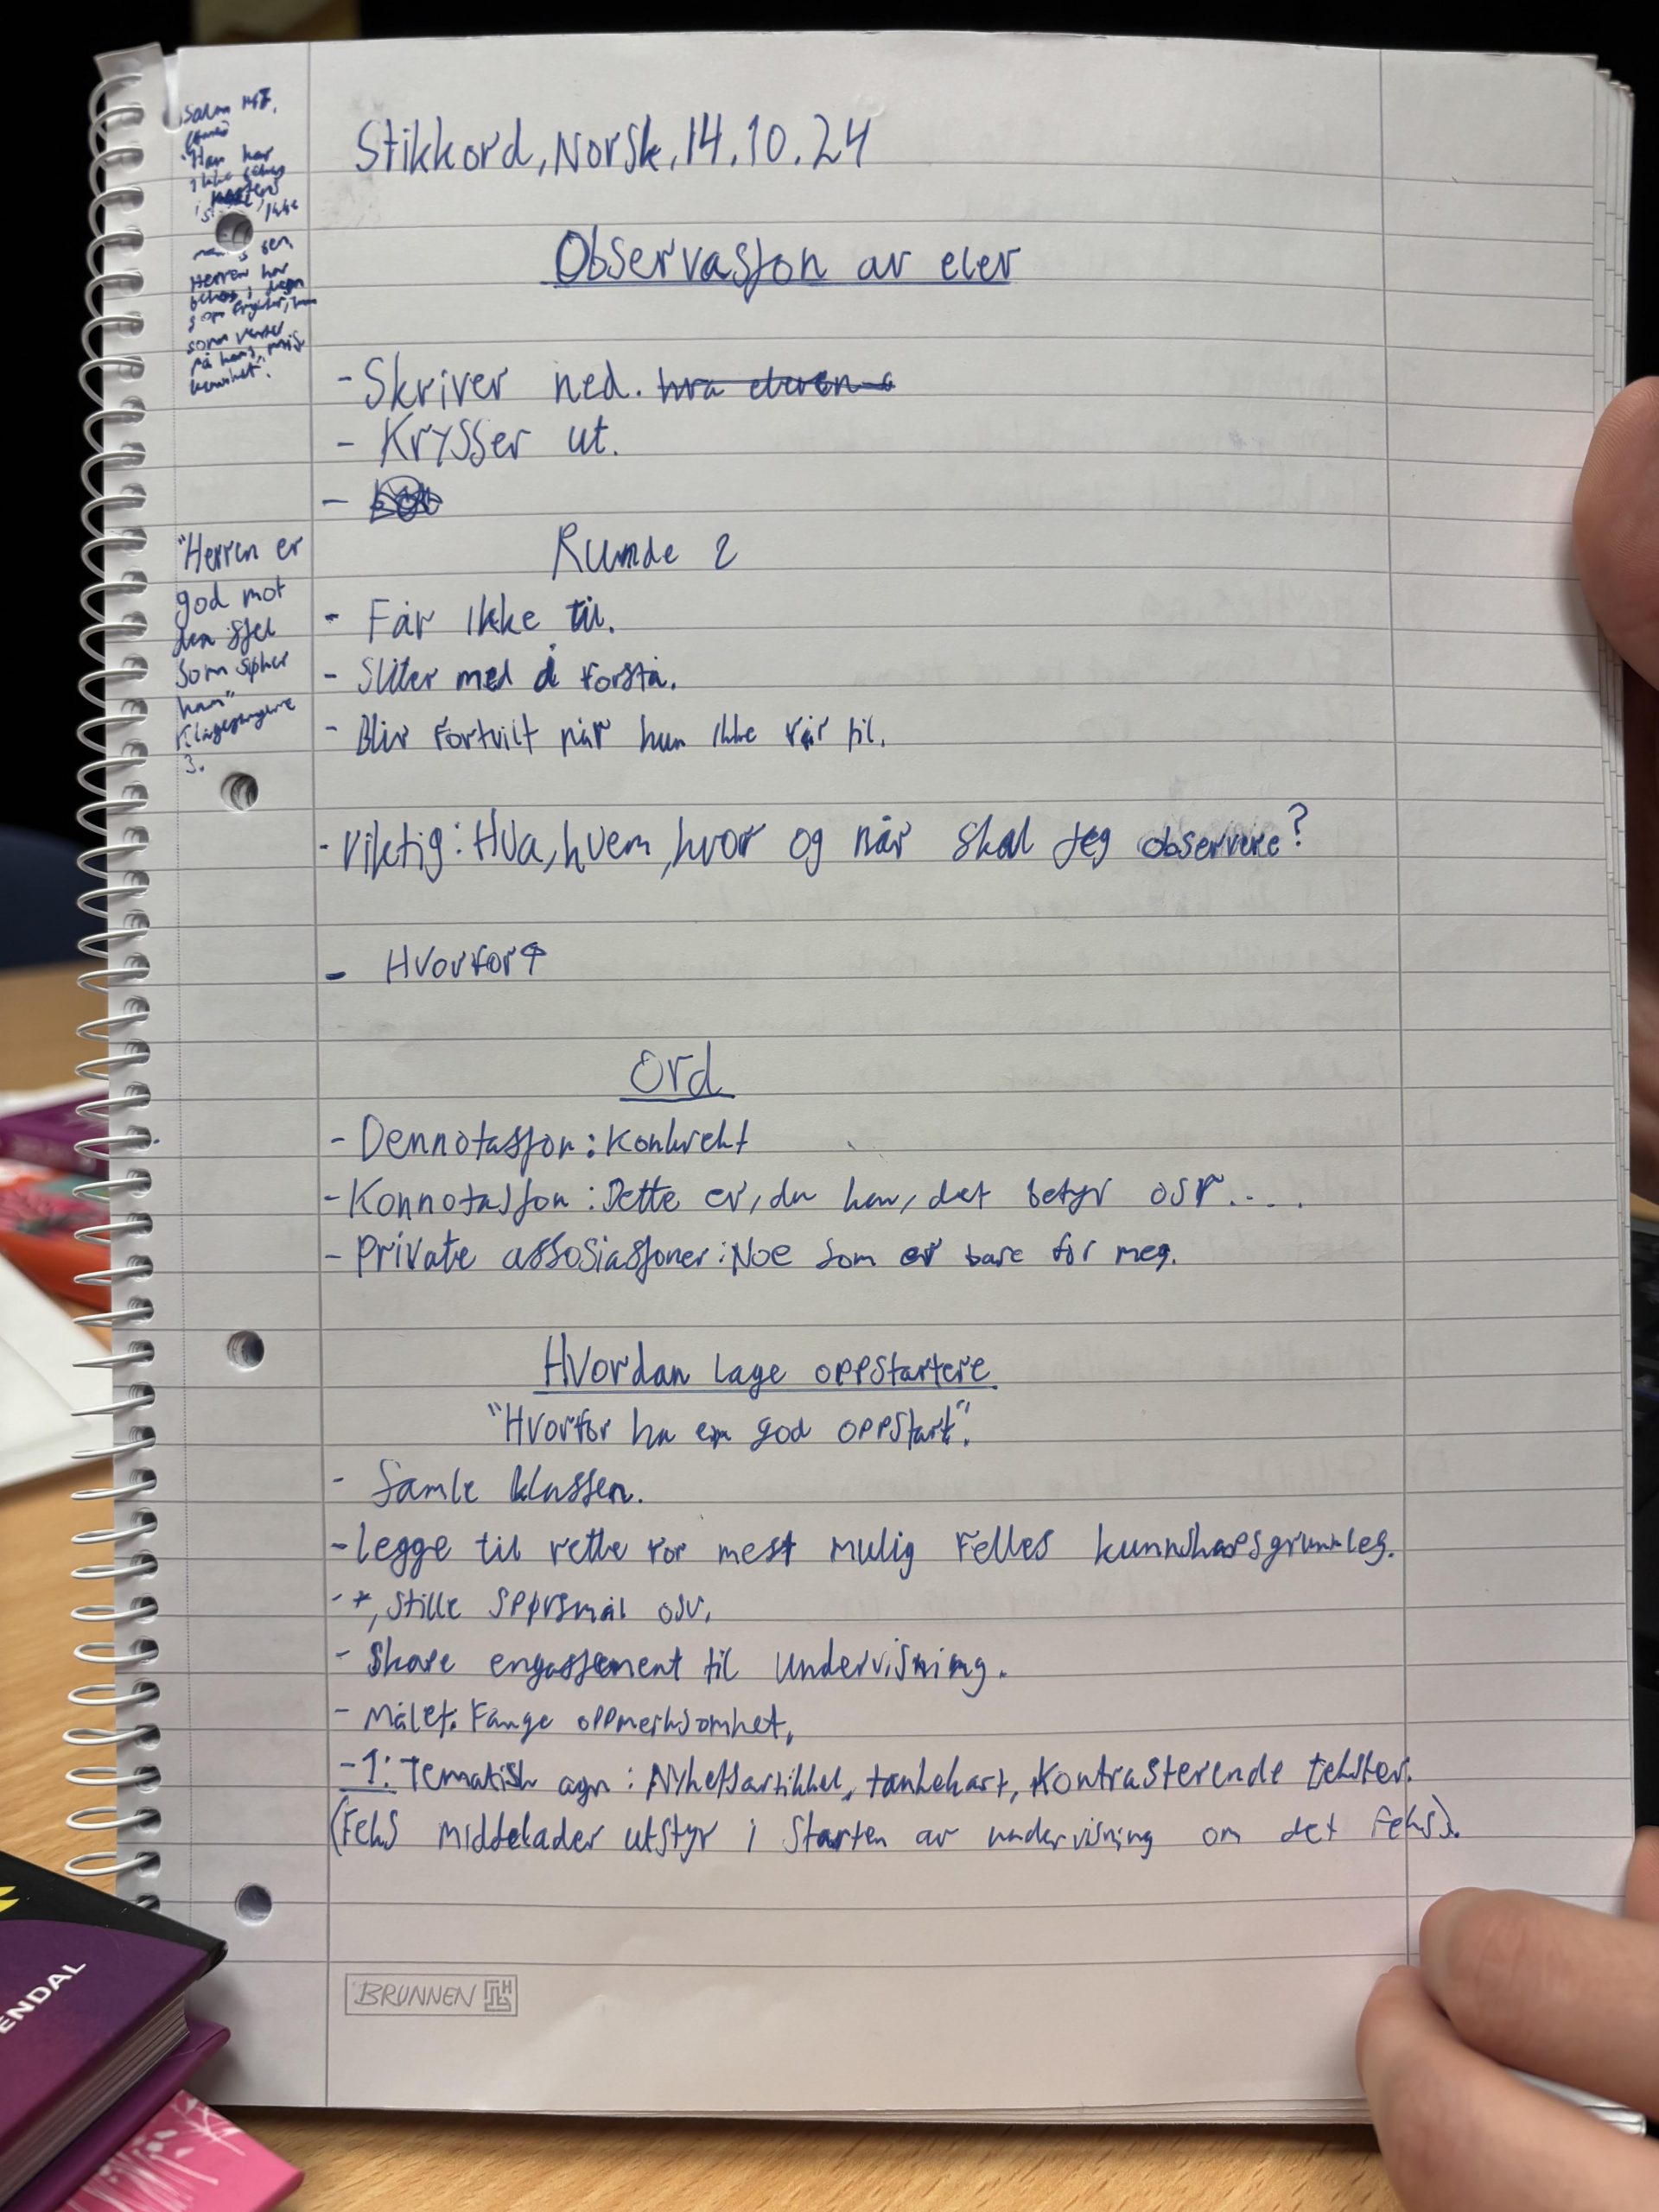 Stikkord, Norsk, 14.10.24
Observasjon av elev
- Skriver ned. hva eleven
- Krysser ut.
-
Runde 2
- Får ikke til.
- Sliter med å forstå.
- Blir fortvilt når hun ikke får til.
- Viktig: Hva, hvem, hvor og når skal jeg observere?
- Hvorfor↑
Ord
- Dennotasjon: Konkret
- Konnotasjon: Dette er, du har, det betyr osv....
- Private assosiasjoner: Noe som er bare for meg.
Hvordan lage oppstartere
"Hvorfor ha en god oppstart".
- Samle klassen.
- Legge til rette for mest mulig felles kunnskapsgrunnleg.
- *, stille spørsmål osv.
- Skape engasjement til undervisning.
- Målet. Fange oppmerksomhet.
- 1: Tematisk agn: Nyhetsartikkel, tankekart, kontrasterende tekster.
(Feks middelader utstyr i starten av undervisning om det feks).
Salm 147.
"Han har
ikke
ikke
Herren har
behag i dem
som frykter, dem
som venter
på hans misk
"Herren er
god mot
den sjel
som søker
ham"
Klagesangene
3.
BRUNNEN
ENDAL